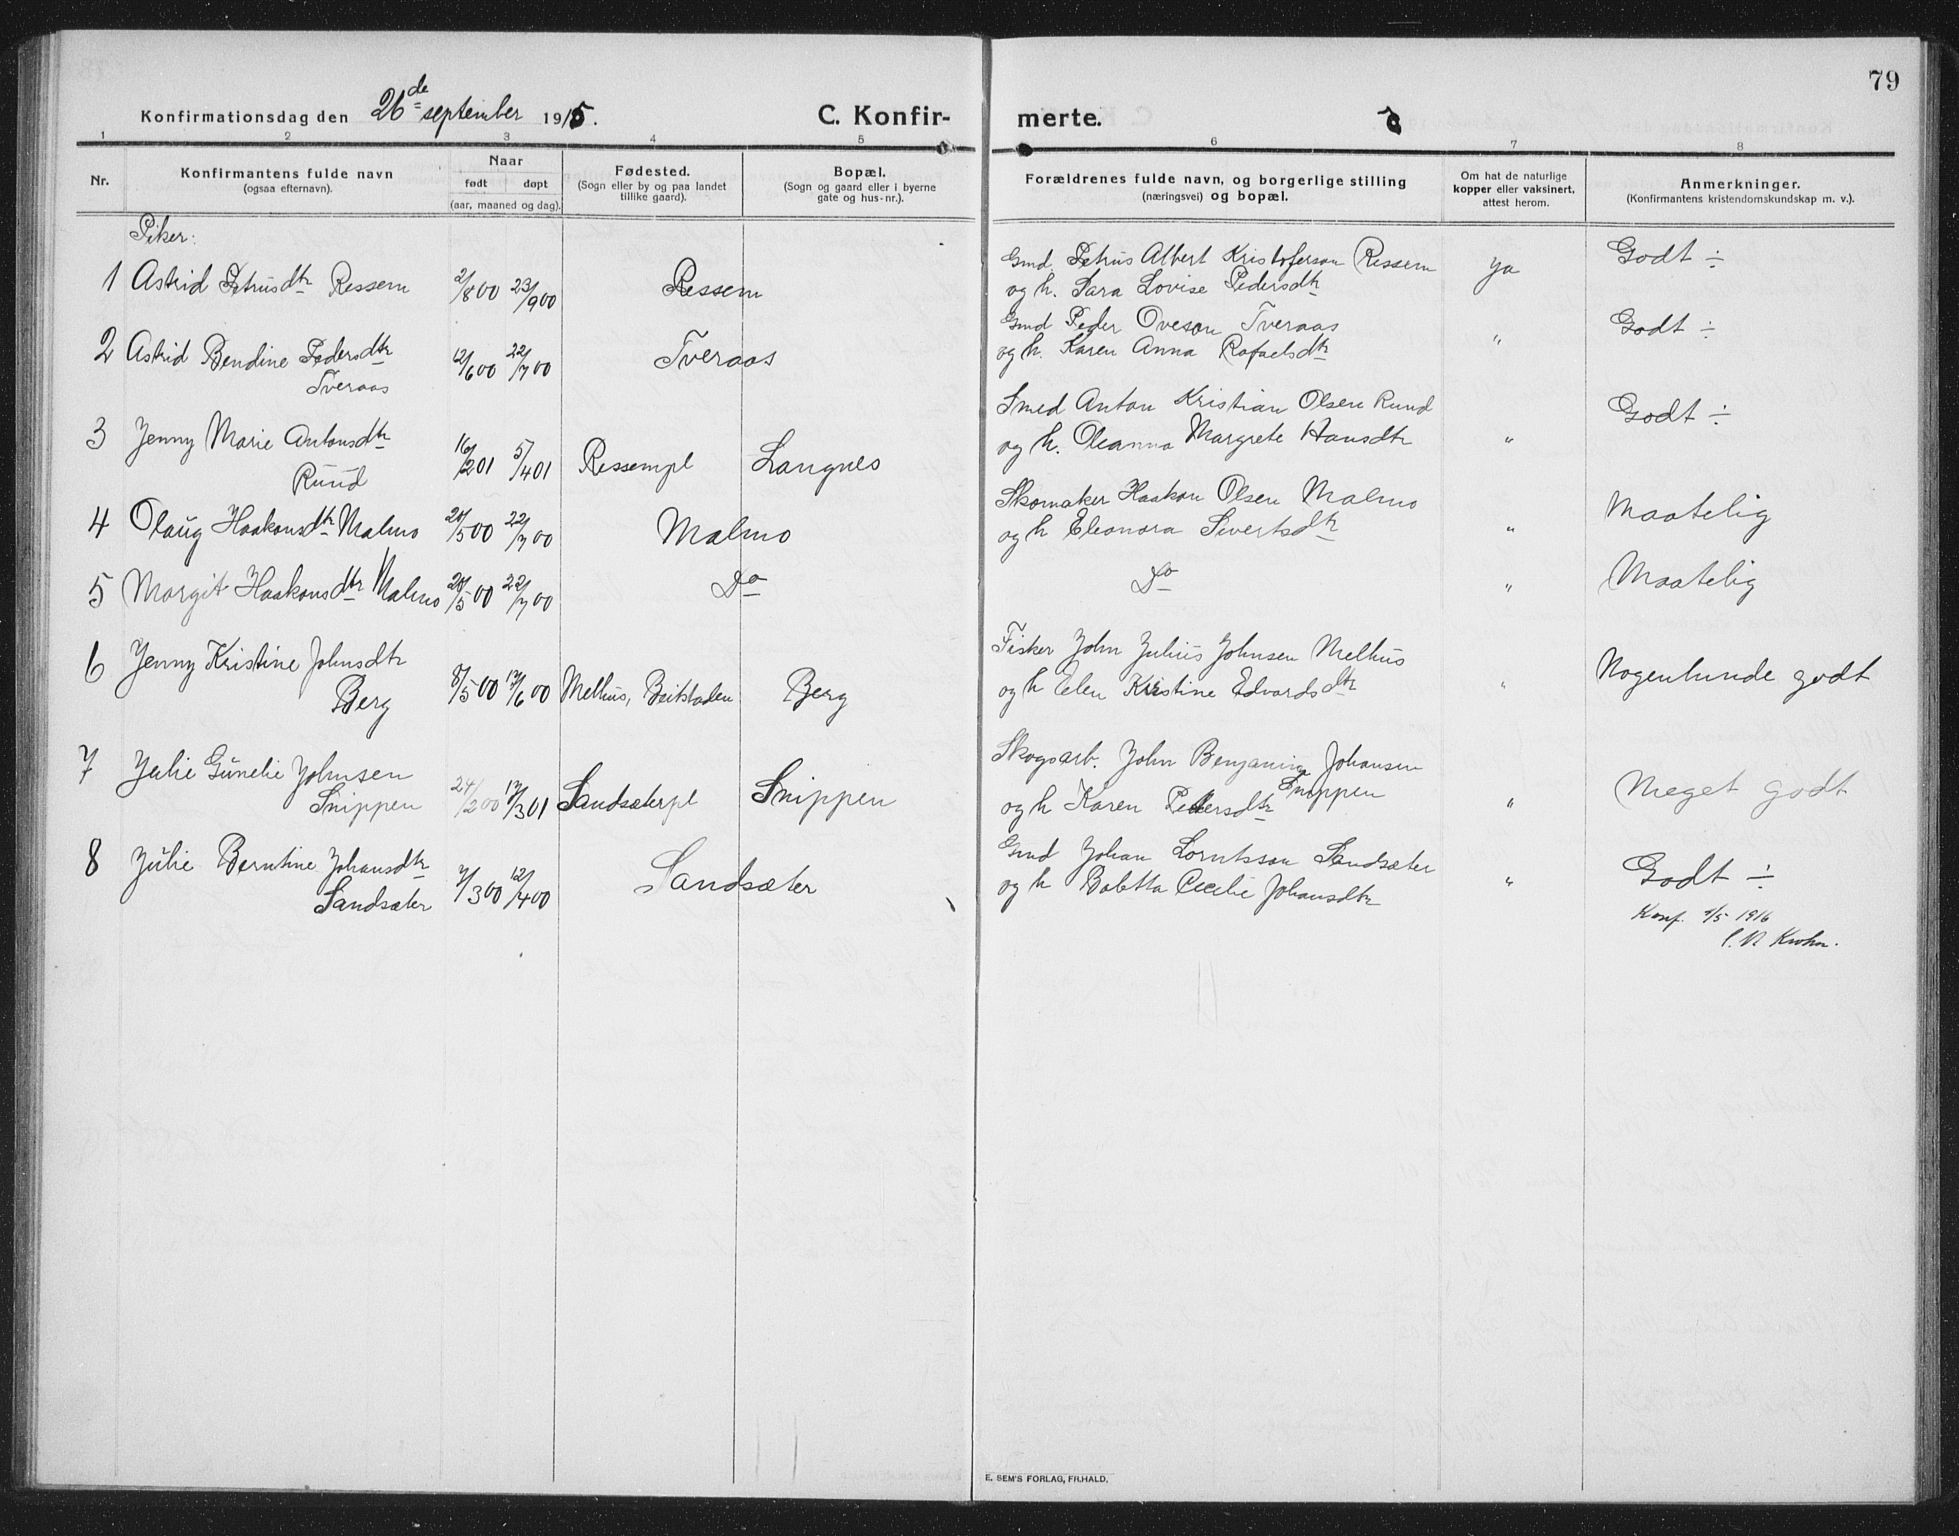 79
Konfirmationsdag den 26de september 1915.
C. Konfirmerte.
1 2 3 4 5 6 7 8
Nr.
Konfirmantens fulde navn
(ogsaa efternavn).
Naar
født døpt
(aar, maaned og dag).
Fødested.
(Sogn eller by og paa landet
tillike gaard).
Bopæl.
(Sogn og gaard eller i byerne
gate og hus-nr.).
Forældrenes fulde navn, og borgerlige stilling
(næringsvei) og bopæl.
Om hat de naturlige
kopper eller vaksinert,
attest herom.
Anmerkninger.
(Konfirmantens kristendomskundskap m. v.).
Piker:
1 Astrid Petrusdtr Ressem 2/8 00 23/9 00 Ressem
Gmd. Petrus Albert Kristoferson Ressem
og h. Sara Lovise Pedersdtr
ja
Godt ÷
2 Astrid Bendine Pedersdtr
Tveraas
12/6 00 22/7 00 Tveraas
Gmd Peder Oveson Tveraas
og h. Karen Anna Rafaelsdtr
"
Godt ÷
3 Jenny Marie Antonsdtr
Ruud
16/2 01 5/4 01 Ressempl Langnes
Smed Anton Kristian Olsen Ruud
og h. Oleanna Margrete Hansdtr
"
Godt ÷
4 Olaug Haakonsdtr Malmo 20/5 00 22/7 00 Malmo
Skomaker Haakon Olsen Malmo
og h Eleonora Sivertsdtr
"
Maatelig
5 Margit Haakonsdtr Malmo 20/5 00 22/7 00 Do
Do
"
Maatelig
6 Jenny Kristine Johnsdtr
Berg
8/5 00 17/6 00 Melhus, Beitstaden Berg
Fisker John Julius Johnsen Melhus
og h Elen Kristine Edvardsdtr
"
Nogenlunde godt
7 Julie Gunelie Johnsen
Snippen
24/2 00 17/3 01 Sandsæterpl Snippen
Skogsarb. John Benjamin Johansen
Snippen
og h Karen Pedersdtr
"
Meget godt
8 Julie Berntine Johansdtr
Sandsæter
7/3 00 12/4 00 Sandsæter
Gmd Johan Lorntsson Sandsæter
og h Baletta Cecilie Johansdtr
"
Godt ÷
Konf. 1/5 1916
C. N Krohn.
E. SEM'S FORLAG, FR.HALD.